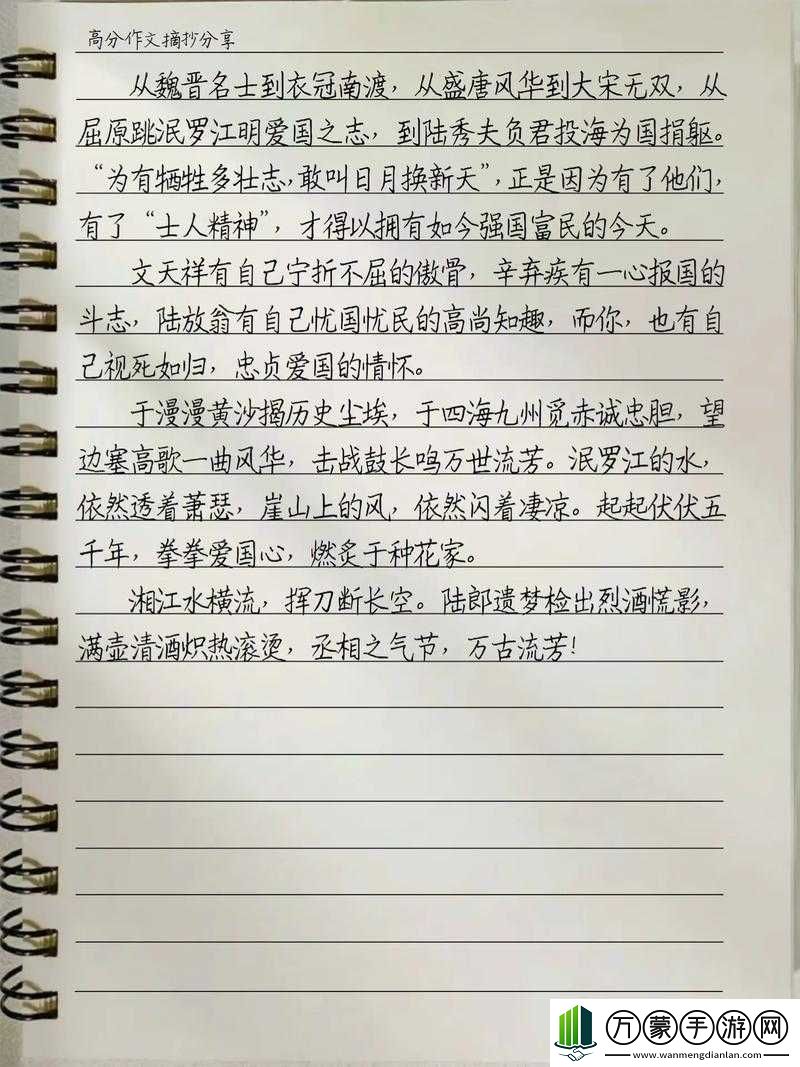 高分作文摘抄分享
从魏晋名士到衣冠南渡，从盛唐风华到大宋无双，从
屈原跳泯罗江明爱国之志，到陆秀夫负君投海为国捐躯。
“为有牺牲多壮志，敢叫日月换新天”，正是因为有了他们，
有了“士人精神”，才得以拥有如今强国富民的今天。
文天祥有自己宁折不屈的傲骨，辛弃疾有一心报国的
斗志，陆放翁有自己忧国忧民的高尚知趣，而你，也有自
己视死如归，忠贞爱国的情怀。
于漫漫黄沙揭历史尘埃，于四海九州觅赤诚忠胆，望
边塞高歌一曲风华，击战鼓长鸣万世流芳。泯罗江的水，
依然透着萧瑟，崖山上的风，依然闪着凄凉。起起伏伏五
千年，拳拳爱国心，燃炙于种花家。
湘江水横流，挥刀断长空。陆郎遗梦检出烈酒慌影，
满壶清酒炽热滚烫，丞相之气节，万古流芳！
万蒙手游网
www.wanmengdianlan.com